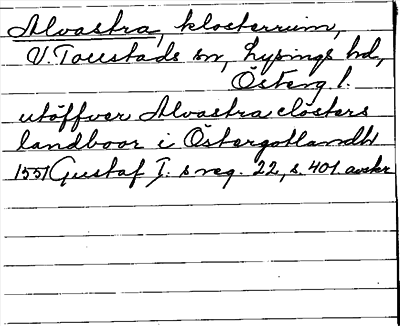 Alvastra, klosterruin,
V. Tollstads sn, Lysings hd,
Österg l.
utöffver Alvastra closters
landboor i Östergotlandh
1551 Gustaf I.s reg. 22, s. 401. avskr